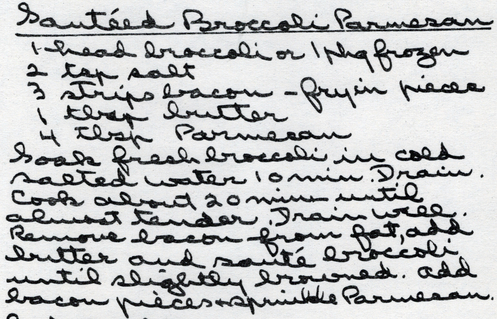 Sautéed Broccoli Parmesan
1 head broccoli or 1 pkg frozen
2 tsp salt
3 strips bacon - fry in pieces
1 tbsp butter
4 tbsp Parmesan
Soak fresh broccoli in cold
salted water 10 min. Drain.
Cook about 20 min - until
almost tender. Drain well.
Remove bacon from fat, add
butter and sauté broccoli
until slightly browned. add
bacon pieces + sprinkle Parmesan.